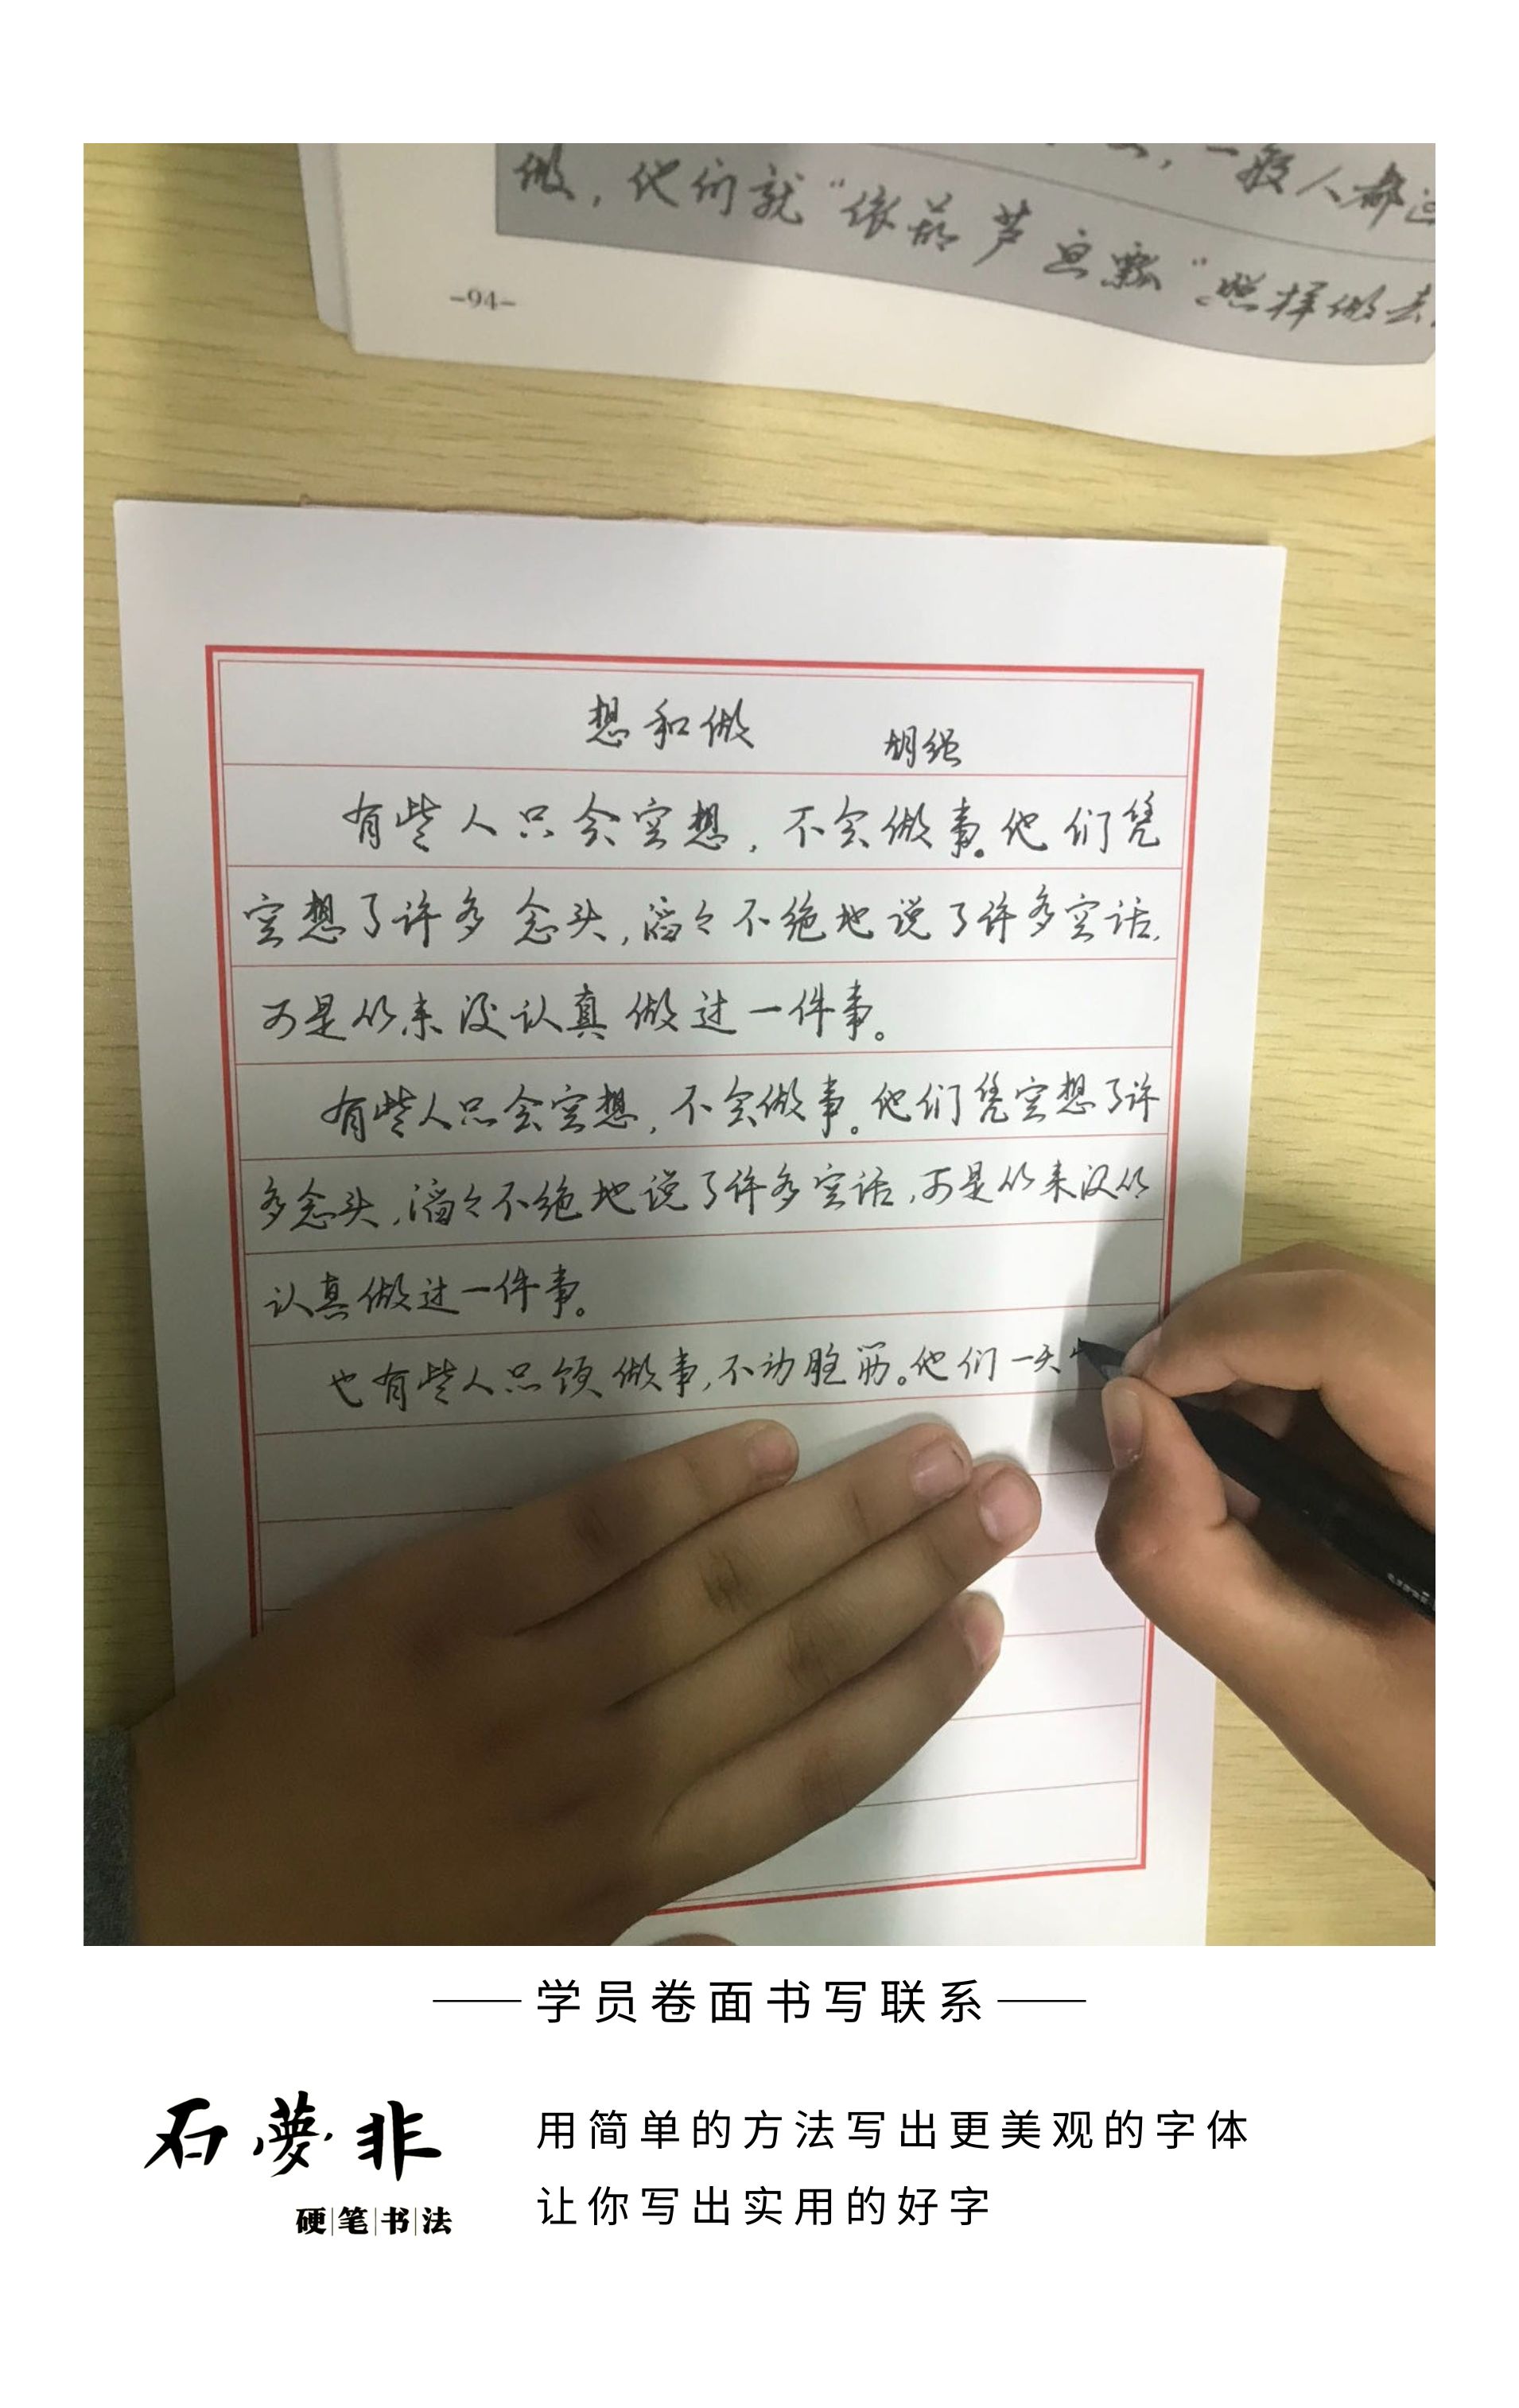 一般人都这
做，他们就“依葫芦画瓢”照样做去，
-94-
想和做 胡绳
有些人只会空想，不会做事。他们凭
空想了许多念头，滔々不绝地说了许多空话，
可是从来没认真做过一件事。
有些人只会空想，不会做事。他们凭空想了许
多念头，滔々不绝地说了许多空话，可是从来没从
认真做过一件事。
也有些人只顾做事，不动脑筋。他们一天
uni
学员卷面书写联系
石夢非
硬笔书法
用简单的方法写出更美观的字体
让你写出实用的好字